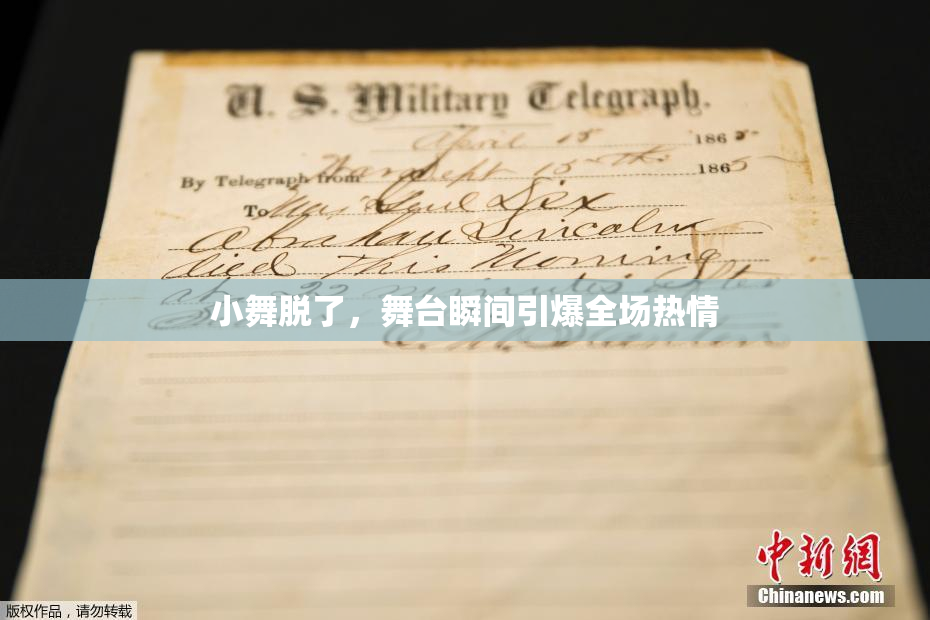 U. S. Military Telegraph.
April 15 1865
By Telegraph from War Dept 15th 1865
To Maj Genl Dix
Abraham Lincoln
died This Morning
at 22 minutes after
小舞脱了，舞台瞬间引爆全场热情
中新网
Chinanews.com
版权作品，请勿转载